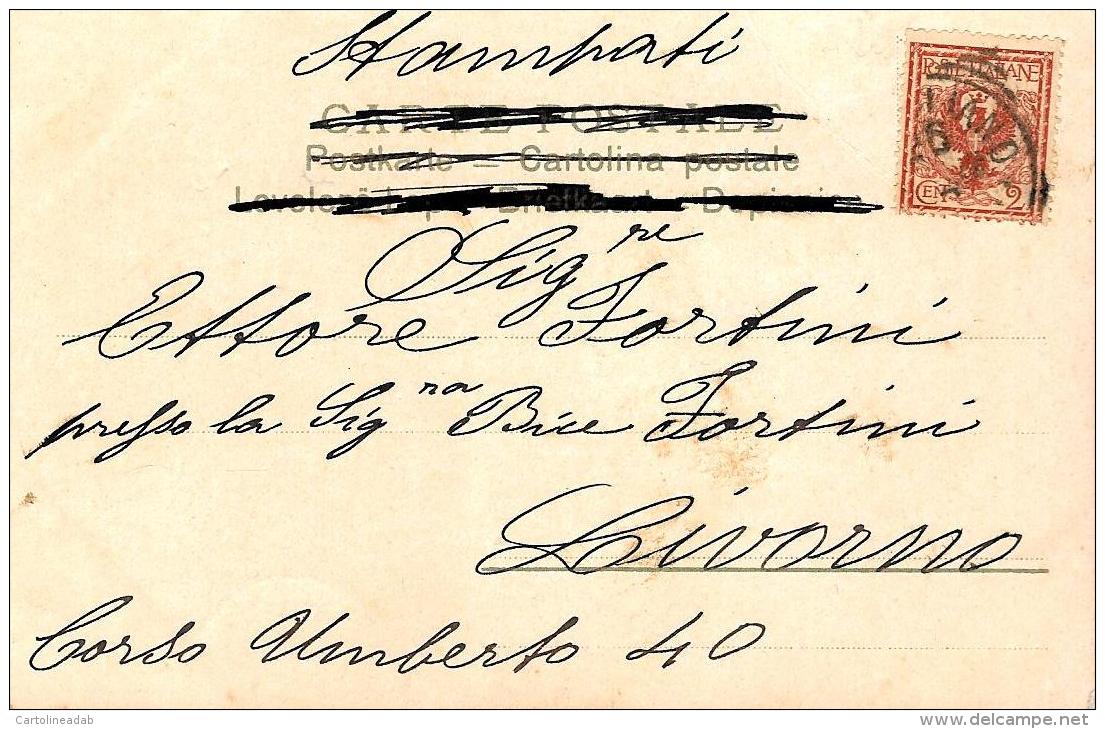 Stampati
CARTE POSTALE
Postkarte – Cartolina postale
Levelező-Lap – Briefkaart – Dopisnice
R. R. POSTE ITALIANE
CENT 2
Sig.re
Ettore Fortini
presso la Sig.na Bice Fortini
Livorno
Corso Umberto 40
Cartolineadab
www.delcampe.net